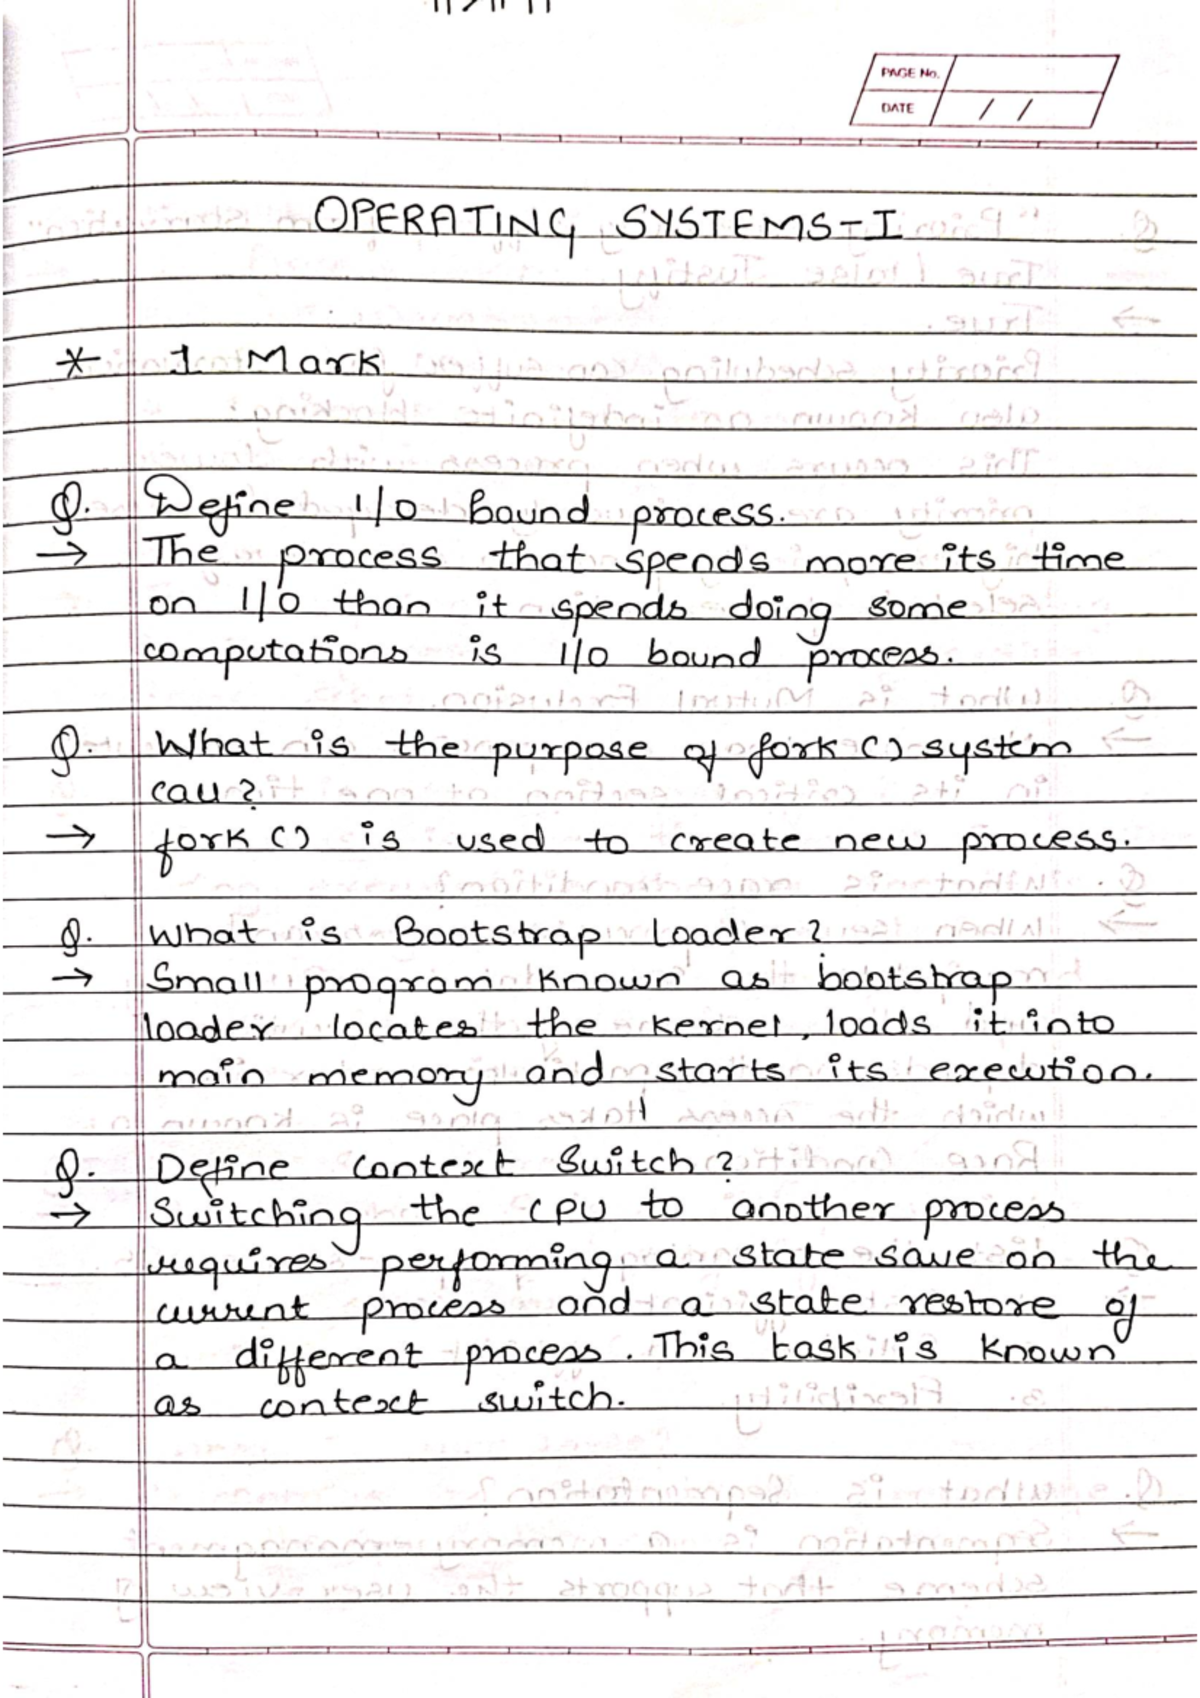 PAGE No.
DATE / /
OPERATING SYSTEMS-I
* 1 Mark
Q. Define I/O Bound process.
→ The process that spends more its time
on I/O than it spends doing some
computations is I/O bound process.
Q. What is the purpose of fork() system
call?
→ fork() is used to create new process.
Q. What is Bootstrap Loader?
→ Small program known as bootstrap
loader locates the kernel, loads it into
main memory and starts its execution.
Q. Define Context Switch?
→ Switching the CPU to another process
requires performing a state save on the
current process and a state restore of
a different process. This task is known
as context switch.